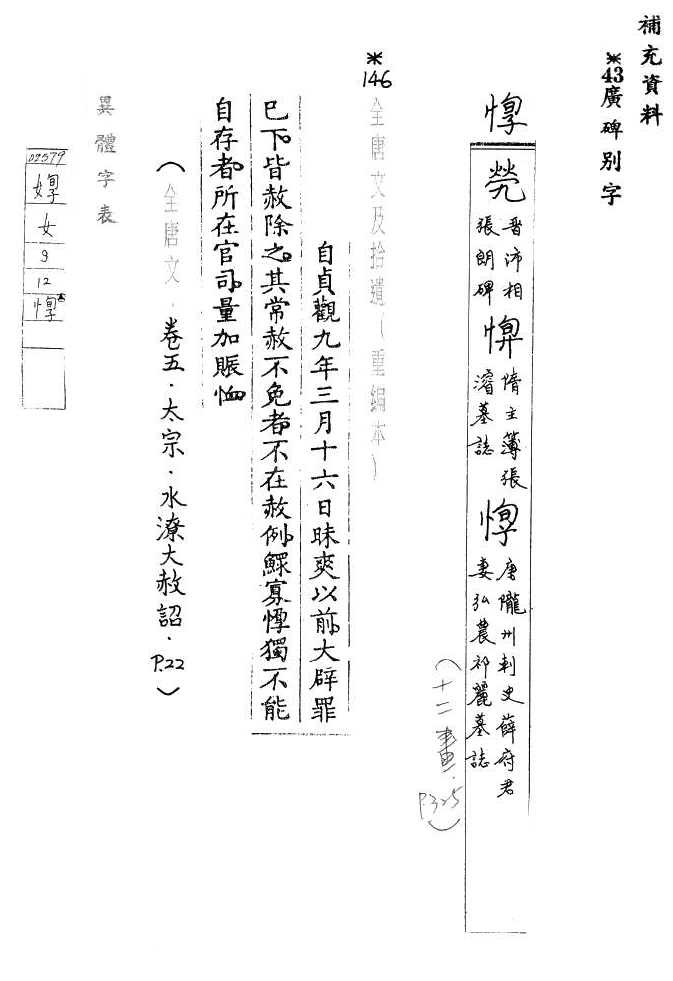 補充資料
*43廣碑別字
惸
焭 晉沛相
張朗碑
隋主簿張
濬墓誌
惸 唐隴州刺史薛府君
妻弘農祁麗墓誌
(十二畫.
P.325)
*146
全唐文及拾遺(重編本)
自貞觀九年三月十六日昧爽以前。大辟罪
已下。皆赦除之。其常赦不免者。不在赦例。鰥寡惸獨不能
自存者。所在官司。量加賑恤
(全唐文.卷五.太宗.水潦大赦詔.P.22)
異體字表
02579
女
9
12
惸